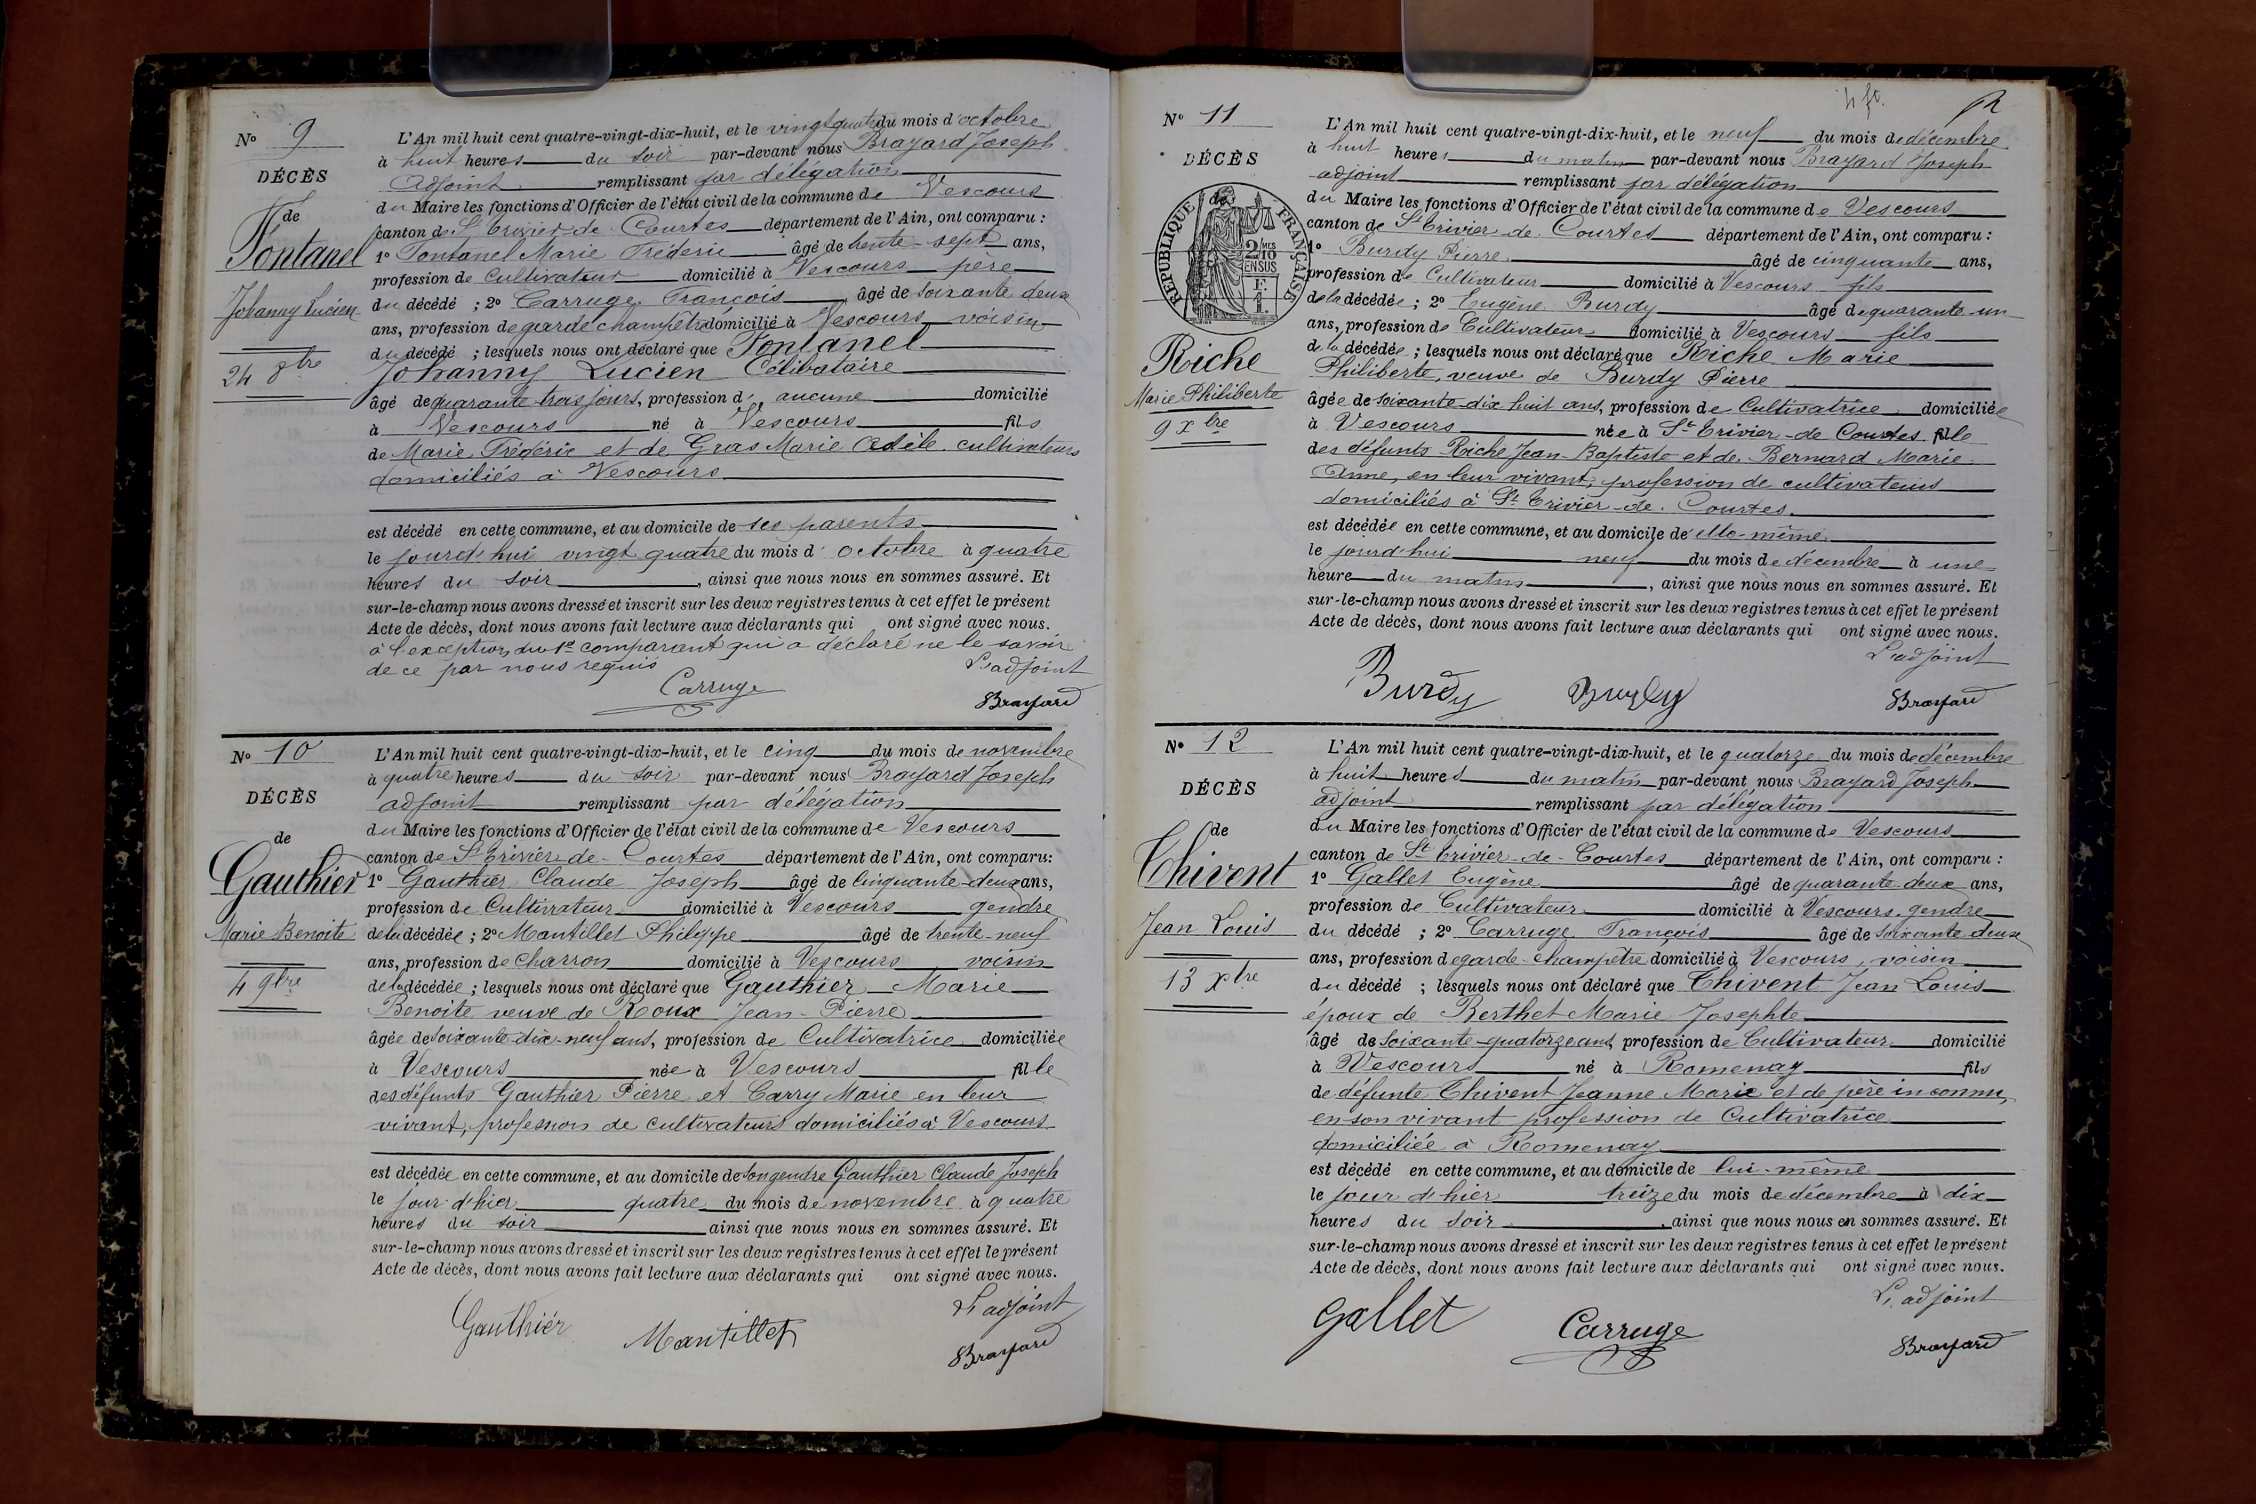 N° 9
DÉCÈS
de
Fontanel
Johanny Lucien
24 8bre
L'An mil huit cent quatre-vingt-dix-huit, et le vingt quatre du mois d'octobre
à huit heures du soir par-devant nous Brayard Joseph
adjoint remplissant par délégation
du Maire les fonctions d'Officier de l'état civil de la commune de Vescours
canton de St Trivier-de-Courtes département de l'Ain, ont comparu :
1° Fontanel Marie Fréderic âgé de trente-sept ans,
profession de Cultivateur domicilié à Vescours père
du décédé ; 2° Carruge François âgé de soixante deux
ans, profession de garde champêtre domicilié à Vescours voisin
du décédé ; lesquels nous ont déclaré que Fontanel
Johanny Lucien Célibataire
âgé de quarante trois jours, profession d' aucune domicilié
à Vescours né à Vescours fils
de Marie Fréderic et de Gras Marie Adèle cultivateurs
domiciliés à Vescours
est décédé en cette commune, et au domicile de ses parents
le jourd'hui vingt quatre du mois d' octobre à quatre
heures du soir, ainsi que nous nous en sommes assuré. Et
sur-le-champ nous avons dressé et inscrit sur les deux registres tenus à cet effet le présent
Acte de décès, dont nous avons fait lecture aux déclarants qui ont signé avec nous.
à l'exception du 1er comparant qui a déclaré ne le savoir
de ce par nous requis L'adjoint
Carruge Brayard
N° 10
DÉCÈS
de
Gauthier
Marie Benoite
4 9bre
L'An mil huit cent quatre-vingt-dix-huit, et le cinq du mois de novembre
à quatre heures du soir par-devant nous Brayard Joseph
adjoint remplissant par délégation
du Maire les fonctions d'Officier de l'état civil de la commune de Vescours
canton de St Trivier-de-Courtes département de l'Ain, ont comparu:
1° Gauthier Claude Joseph âgé de Cinquante-deux ans,
profession de Cultivateur domicilié à Vescours gendre
de la décédée ; 2° Mantillet Philippe âgé de trente-neuf
ans, profession de Charron domicilié à Vescours voisin
de la décédée ; lesquels nous ont déclaré que Gauthier Marie
Benoite veuve de Roux Jean-Pierre
âgée de soixante-dix-neuf ans, profession de Cultivatrice domiciliée
à Vescours née à Vescours fille
des défunts Gauthier Pierre et Carry Marie en leur
vivant, profession de cultivateurs domiciliés à Vescours
est décédée en cette commune, et au domicile de son gendre Gauthier Claude Joseph
le jour d'hier quatre du mois de novembre à quatre
heures du soir ainsi que nous nous en sommes assuré. Et
sur-le-champ nous avons dressé et inscrit sur les deux registres tenus à cet effet le présent
Acte de décès, dont nous avons fait lecture aux déclarants qui ont signé avec nous.
L'adjoint
Gauthier Mantillet Brayard
N° 11
DÉCÈS
de
RÉPUBLIQUE FRANÇAISE
2/10 MES
EN SUS
Riche
Marie Philiberte
9 xbre
L'An mil huit cent quatre-vingt-dix-huit, et le neuf du mois de décembre
à huit heures du matin par-devant nous Brayard Joseph
adjoint remplissant par délégation
du Maire les fonctions d'Officier de l'état civil de la commune de Vescours
canton de St Trivier-de-Courtes département de l'Ain, ont comparu :
1° Burdy Pierre âgé de cinquante ans,
profession de Cultivateur domicilié à Vescours fils
de la décédée ; 2° Eugène Burdy âgé de quarante-un
ans, profession de Cultivateur domicilié à Vescours fils
de la décédée ; lesquels nous ont déclaré que Riche Marie
Philiberte, veuve de Burdy Pierre
âgée de soixante dix huit ans, profession de Cultivatrice domiciliée
à Vescours née à St Trivier-de-Courtes fille
des défunts Riche Jean-Baptiste et de Bernard Marie
Anne, en leur vivant, profession de cultivateurs
domiciliés à St Trivier-de-Courtes.
est décédée en cette commune, et au domicile de elle-même
le jourd'hui neuf du mois de décembre à une
heure du matin, ainsi que nous nous en sommes assuré. Et
sur-le-champ nous avons dressé et inscrit sur les deux registres tenus à cet effet le présent
Acte de décès, dont nous avons fait lecture aux déclarants qui ont signé avec nous.
L'adjoint
Burdy Burdy Brayard
N° 12
DÉCÈS
de
Thivent
Jean Louis
13 xbre
L'An mil huit cent quatre-vingt-dix-huit, et le quatorze du mois de décembre
à huit heures du matin par-devant nous Brayard Joseph
adjoint remplissant par délégation
du Maire les fonctions d'Officier de l'état civil de la commune de Vescours
canton de St Trivier-de-Courtes département de l'Ain, ont comparu :
1° Gallet Eugène âgé de quarante-deux ans,
profession de Cultivateur domicilié à Vescours gendre
du décédé ; 2° Carruge François âgé de soixante deux
ans, profession de garde-champêtre domicilié à Vescours, voisin
du décédé ; lesquels nous ont déclaré que Thivent Jean Louis
époux de Berthet Marie Josephte
âgé de soixante-quatorze ans, profession de Cultivateur domicilié
à Vescours né à Romenay fils
de défunte Thivent Jeanne Marie et de père inconnu,
en son vivant profession de Cultivatrice
domiciliée à Romenay
est décédé en cette commune, et au domicile de lui-même
le jour d'hier treize du mois de décembre à dix
heures du soir, ainsi que nous nous en sommes assuré. Et
sur-le-champ nous avons dressé et inscrit sur les deux registres tenus à cet effet le présent
Acte de décès, dont nous avons fait lecture aux déclarants qui ont signé avec nous.
L'adjoint
Gallet Carruge Brayard